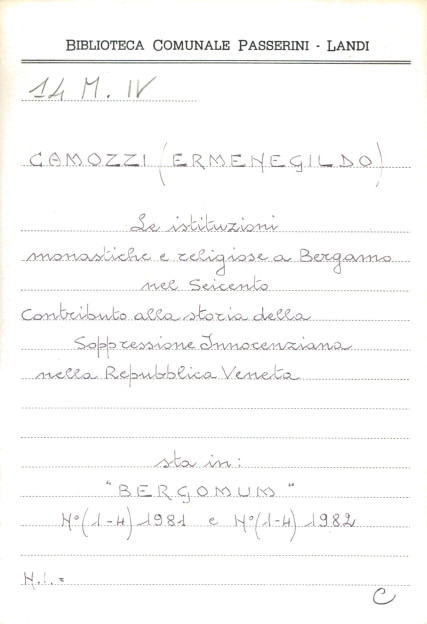 BIBLIOTECA COMUNALE PASSERINI - LANDI
14 M. IV
CAMOZZI (ERMENEGILDO)
Le istituzioni
monastiche e religiose a Bergamo
nel Seicento
Contributo alla storia della
Soppressione Innocenziana
nella Repubblica Veneta
sta in:
"BERGOMUM"
N°(1-4) 1981 e N°(1-4) 1982
N.I. =
C